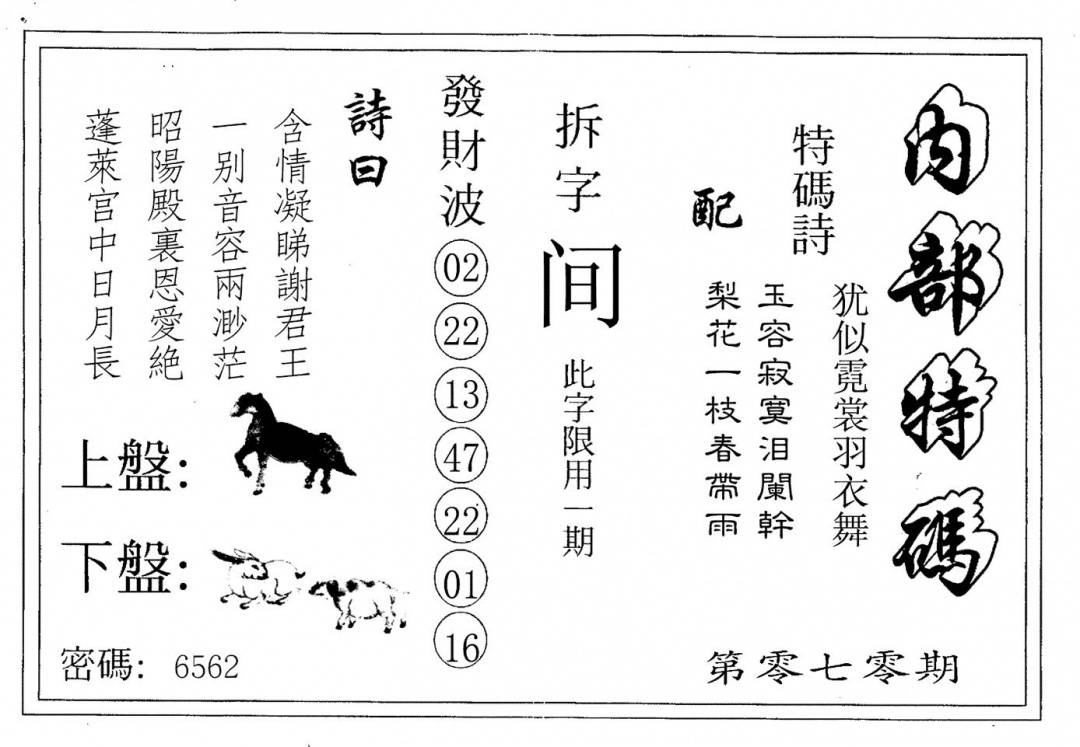 内部特碼
特碼詩
犹似霓裳羽衣舞
配
玉容寂寞泪闌幹
梨花一枝春帶雨
第零七零期
拆字
间
此字限用一期
發財波
02
22
13
47
22
01
16
詩曰
含情凝睇謝君王
一别音容兩渺茫
昭陽殿裏恩愛絕
蓬萊宫中日月長
上盤：
下盤：
密碼：6562